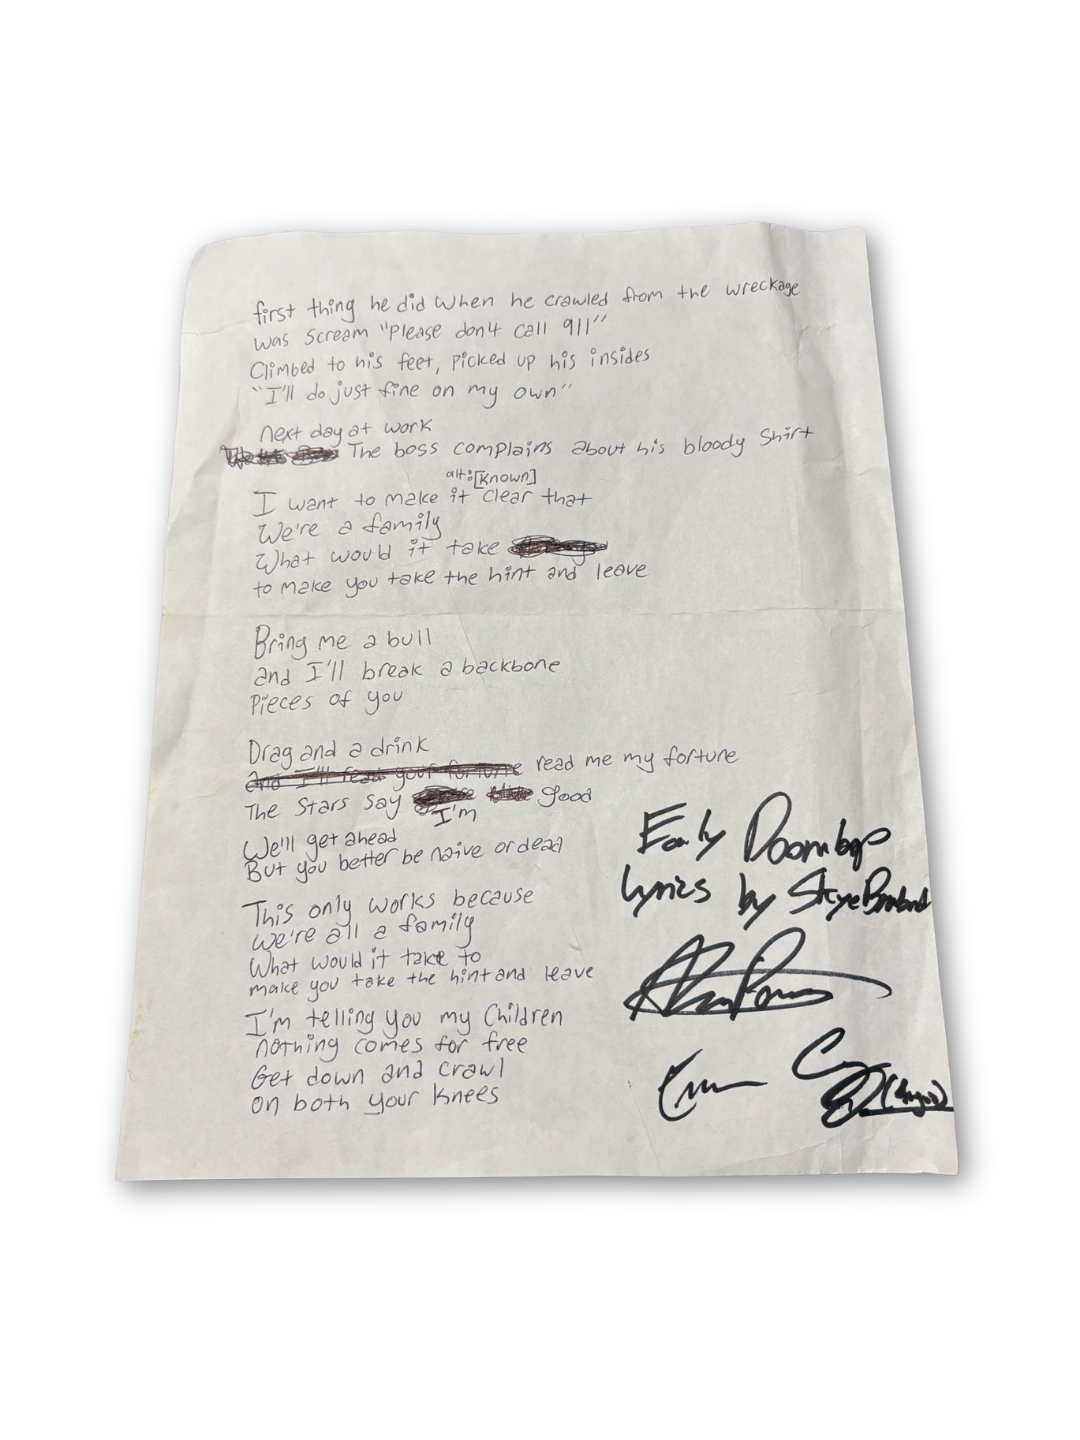 first thing he did when he crawled from the wreckage
was scream "please don't call 911"
Climbed to his feet, picked up his insides
"I'll do just fine on my own"
next day at work
The boss complains about his bloody shirt
alt:[known]
I want to make it clear that
We're a family
What would it take
to make you take the hint and leave
Bring me a bull
and I'll break a backbone
Pieces of you
Drag and a drink
And I'll read your fortune read me my fortune
The stars say good
I'm
We'll get ahead
But you better be naive or dead
This only works because
we're all a family
What would it take to
make you take the hint and leave
I'm telling you my Children
nothing comes for free
Get down and crawl
on both your knees
Early Doombop
Lyrics by Skye